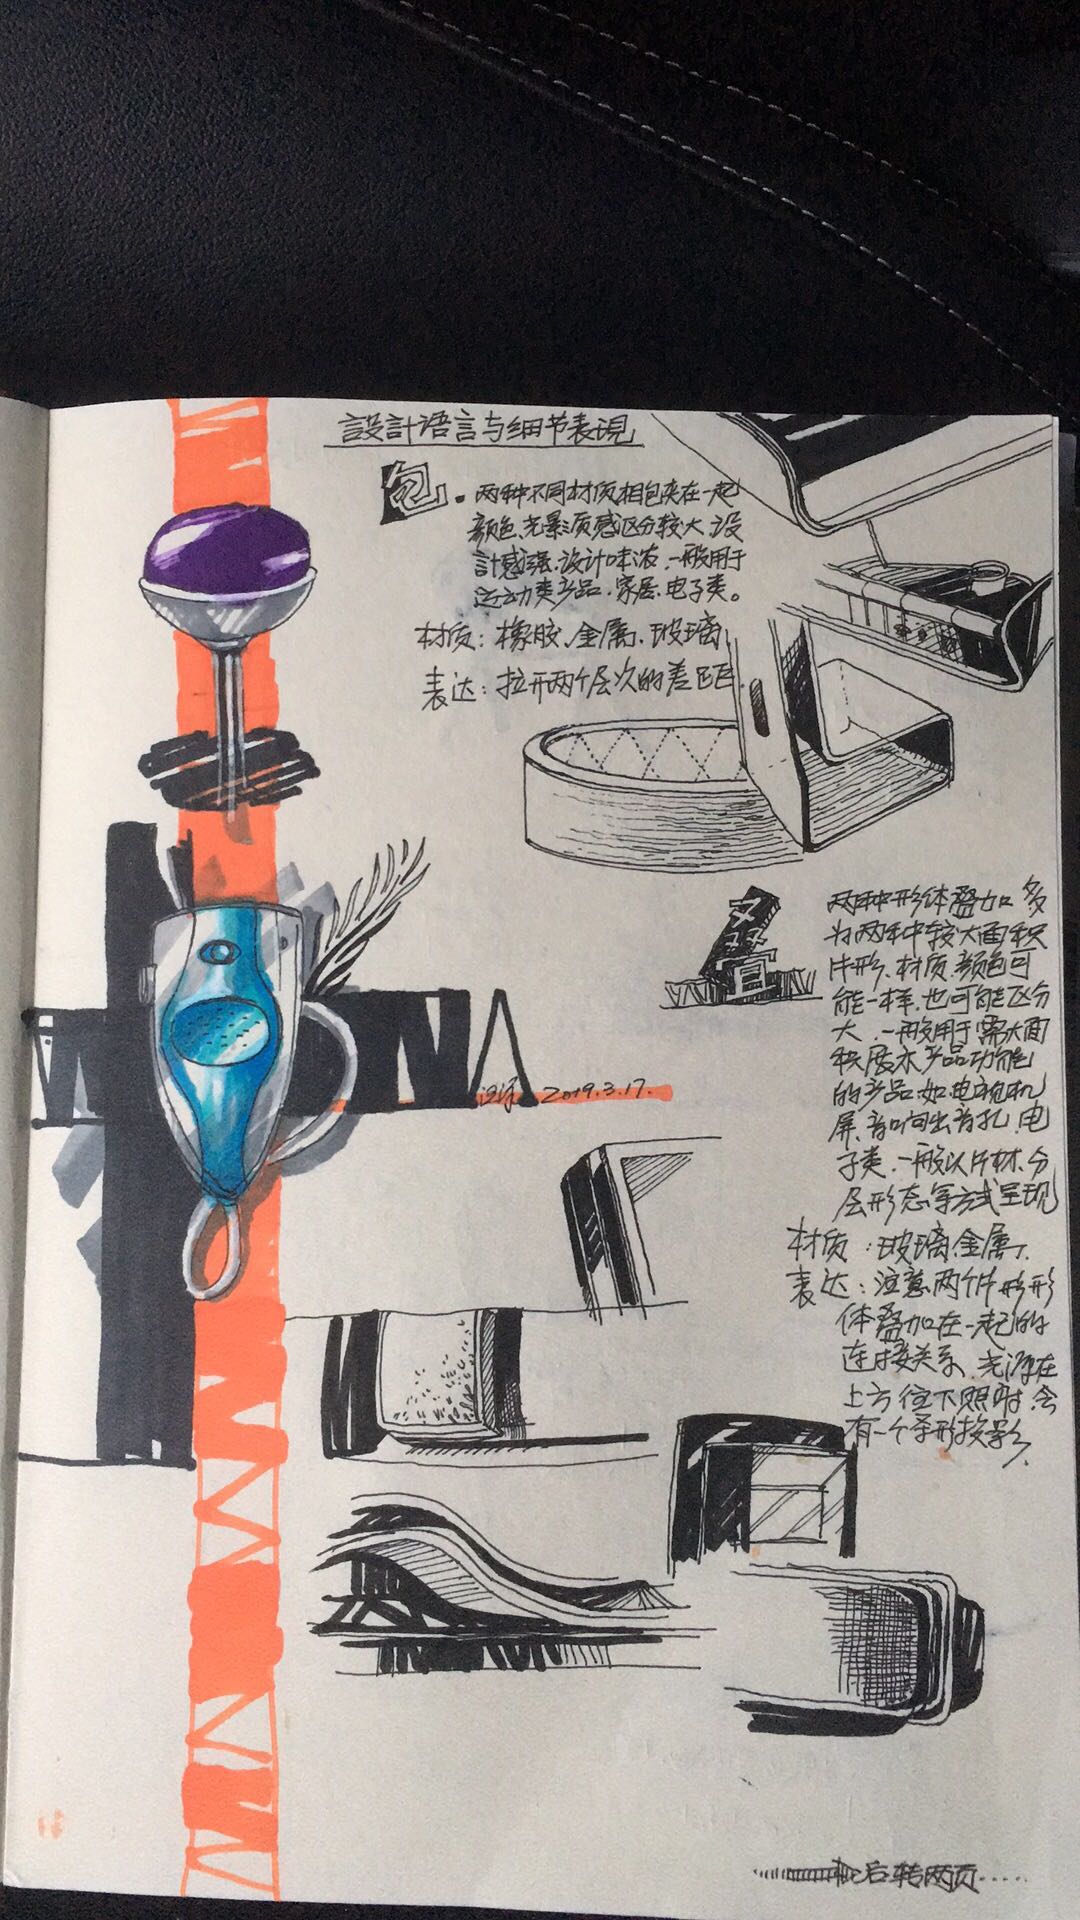 設計语言与细节表現
包
. 两种不同材质相包夹在一起
颜色、光影、质感区分较大、设
計感强、设计味浓、一般用于
运动类产品、家居、电子类。
材质：橡胶、金属、玻璃
表达：拉开两个层次的差距.
叠
两种形体叠加 多
为两种较大面积
片形、材质、颜色可
能一样、也可能区分
大、一般用于需大面
积展示产品功能
的产品、如电视机
屏、音响出音孔、电
子类、一般以片材、分
层形态等方式呈现
材质：玻璃、金属、
表达：注意、两个片形形
体叠加在一起的
连接关系、光源在
上方往下照时、会
有一个条形投影、
2019.3.17.
后转两页.....